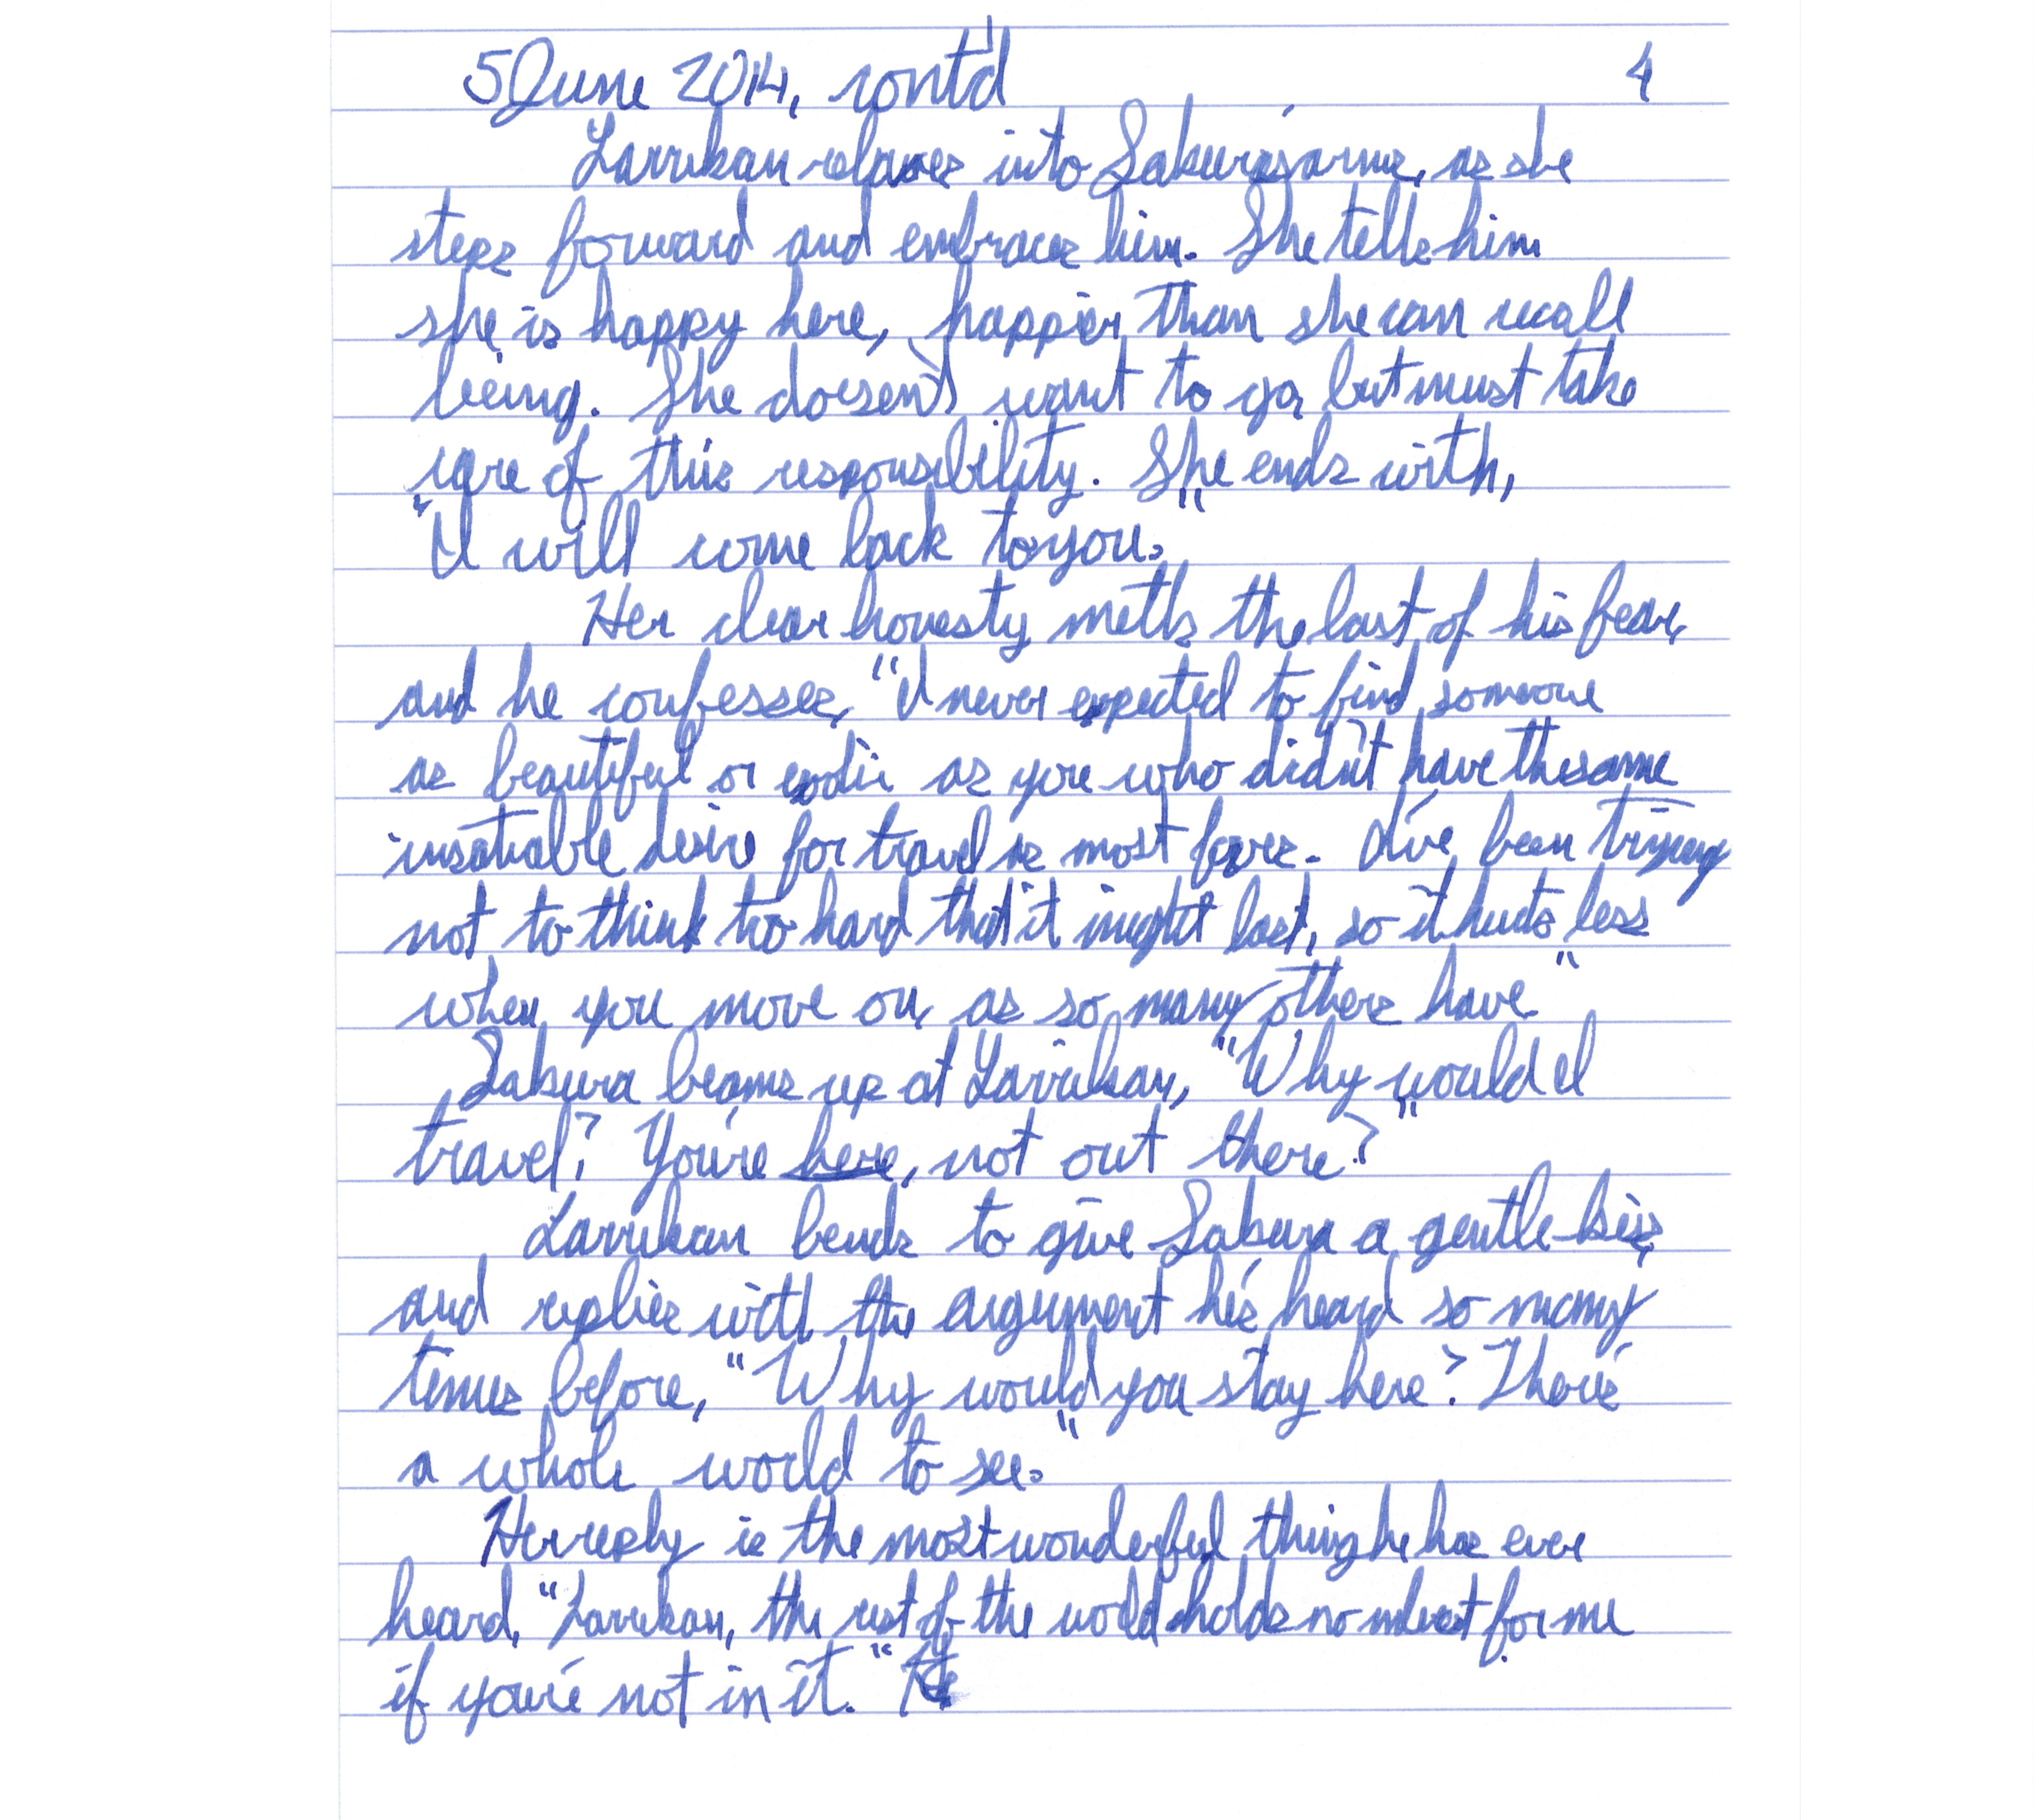 5 June 2014, cont'd 4
Larrikan relaxes into Sakura's arms, as she
steps forward and embraces him. She tells him
she is happy here, happier than she can recall
being. She doesn't want to go, but must take
care of this responsibility. She ends with,
"I will come back to you."
Her clear honesty melts the last of his fear,
and he confesses, "I never expected to find someone
as beautiful or exotic as you who didn't have the same
insatiable desire for travel as most foxes. I've been trying
not to think too hard that it might last, so it hurts less
when you move on, as so many others have."
Sakura beams up at Larrikan, "Why would I
travel? You're here, not out there?"
Larrikan bends to give Sakura a gentle kiss,
and replies with the argument he's heard so many
times before, "Why would you stay here? There's
a whole world to see."
Her reply is the most wonderful thing he has ever
heard, "Larrikan, the rest of the world holds no interest for me
if you're not in it."